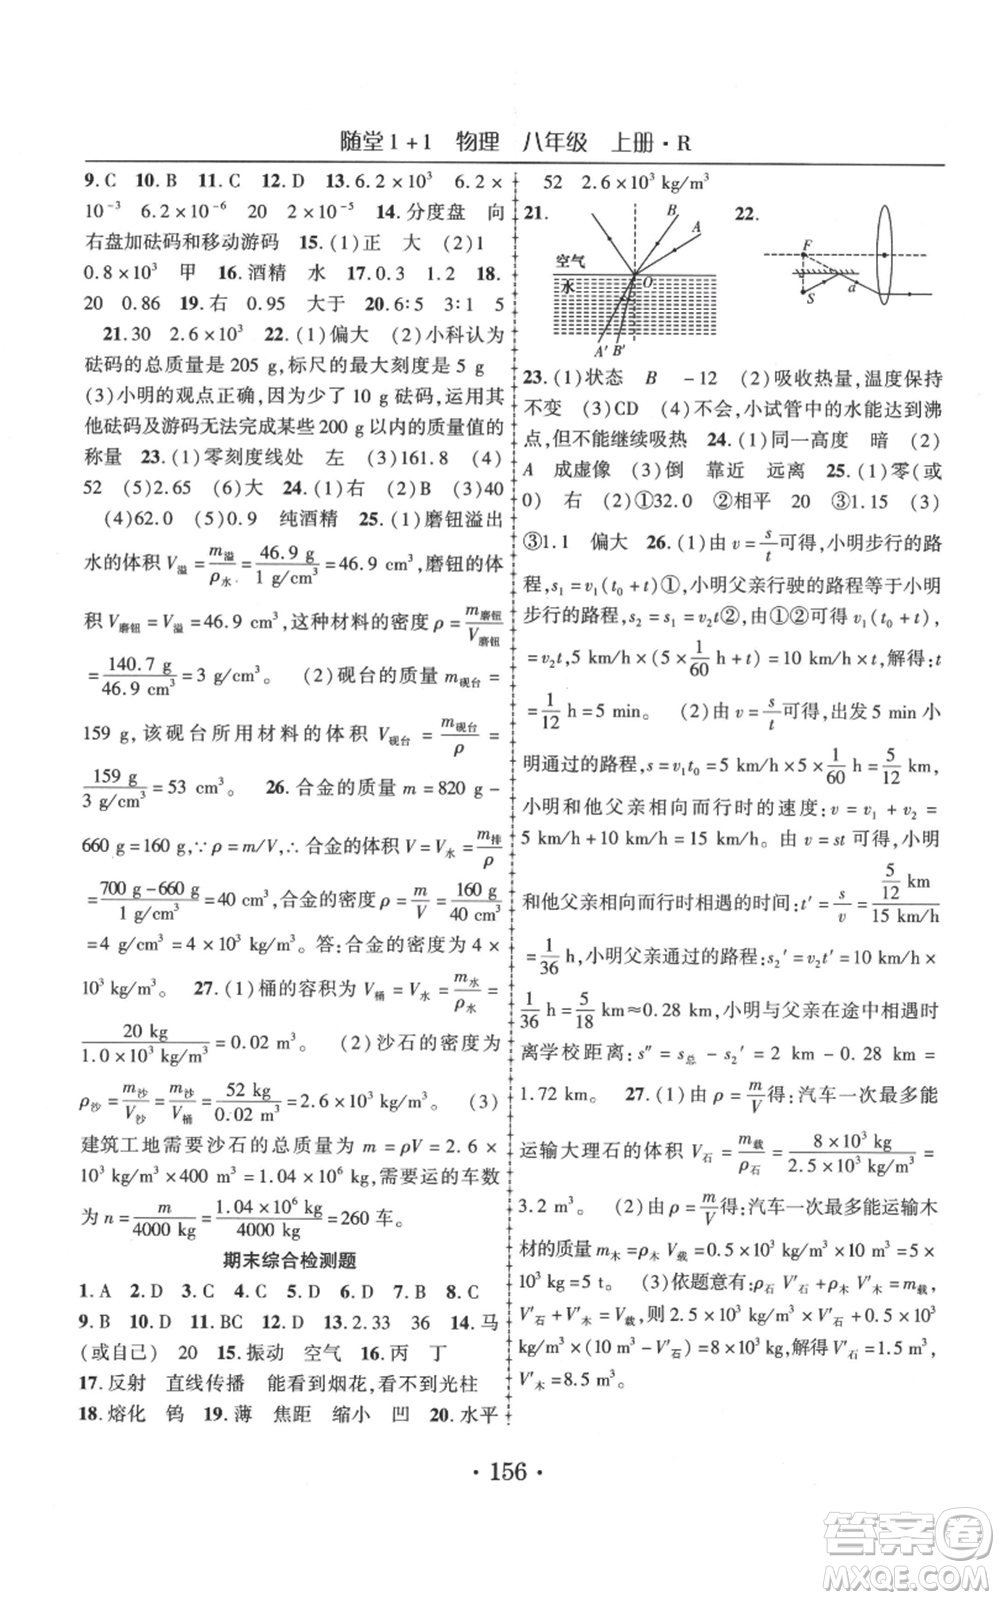 随堂1+1 物理 八年级 上册·R
9.C 10.B 11.C 12.D 13.6.2×10³ 6.2×
10⁻³ 6.2×10⁻⁶ 20 2×10⁻⁵ 14.分度盘 向
右盘加砝码和移动游码 15.(1)正 大 (2)1
0.8×10³ 甲 16.酒精 水 17.0.3 1.2 18.
20 0.86 19.右 0.95 大于 20.6:5 3:1 5
21.30 2.6×10³ 22.(1)偏大 (2)小科认为
砝码的总质量是205 g,标尺的最大刻度是5 g
(3)小明的观点正确,因为没有10 g砝码,使用其
他砝码及游码无法完成某些200 g以内的质量值的
称量 23.(1)零刻度线处 左 (3)161.8 (4)
52 (5)2.65 (6)大 24.(1)右 (2)B (3)40
(4)62.0 (5)0.9 纯酒精 25.(1)磨钮溢出
水的体积V溢=m溢/ρ水=46.9 g/1 g/cm³=46.9 cm³,磨钮的体
积V磨钮=V溢=46.9 cm³,这种材料的密度ρ=m磨钮/V磨钮
=140.7 g/46.9 cm³=3 g/cm³。 (2)砚台的质量m砚台=
159 g,该砚台所用材料的体积V砚台=m砚台/ρ=
159 g/3 g/cm³=53 cm³。 26.合金的质量m=820 g-
660 g=160 g,∵ρ=m/V,∴合金的体积V=V水=m排/ρ
=700 g-660 g/1 g/cm³=40 cm³,合金的密度ρ=m/V=160 g/40 cm³
=4 g/cm³=4×10³ kg/m³。答:合金的密度为4×
10³ kg/m³。 27.(1)桶的容积为V桶=V水=m水/ρ水=
20 kg/1.0×10³ kg/m³=0.02 m³。 (2)沙石的密度为
ρ沙=m沙/V沙=m沙/V桶=52 kg/0.02 m³=2.6×10³ kg/m³。 (3)
建筑工地需要沙石的总质量为m=ρV=2.6×
10³ kg/m³×400 m³=1.04×10⁶ kg,需要运的车数
为n=m/4000 kg=1.04×10⁶ kg/4000 kg=260车。
期末综合检测题
1.A 2.D 3.C 4.C 5.D 6.D 7.B 8.C
9.B 10.D 11.BC 12.D 13.2.33 36 14.马
(或自己) 20 15.振动 空气 16.丙 丁
17.反射 直线传播 能看到烟花,看不到光柱
18.熔化 钨 19.薄 焦距 缩小 凹 20.水平
52 2.6×10³ kg/m³
21. 22.
B
A
空气
水
O
A′ B′
F
S
a
23.(1)状态 B -12 (2)吸收热量,温度保持
不变 (3)CD (4)不会,小试管中的水能达到沸
点,但不能继续吸热 24.(1)同一高度 暗 (2)
A 成虚像 (3)倒 靠近 远离 25.(1)零(或
0) 右 (2)①32.0 ②相平 20 ③1.15 (3)
③1.1 偏大 26.(1)由v=s/t可得,小明步行的路
程,s₁=v₁(t₀+t)①,小明父亲行驶的路程等于小明
步行的路程,s₂=s₁=v₂t②,由①②可得v₁(t₀+t)
=v₂t,5 km/h×(5×1/60 h+t)=10 km/h×t,解得:t
=1/12 h=5 min。 (2)由v=s/t可得,出发5 min小
明通过的路程,s=v₁t₀=5 km/h×5×1/60 h=5/12 km,
小明和他父亲相向而行时的速度:v=v₁+v₂=
5 km/h+10 km/h=15 km/h。由v=st可得,小明
和他父亲相向而行时相遇的时间:t′=s/v=5/12 km/15 km/h
=1/36 h,小明父亲通过的路程:s₂′=v₂t′=10 km/h×
1/36 h=5/18 km≈0.28 km,小明与父亲在途中相遇时
离学校距离:s″=s总-s₂′=2 km-0.28 km=
1.72 km。 27.(1)由ρ=m/V得:汽车一次最多能
运输大理石的体积V石=m载/ρ石=8×10³ kg/2.5×10³ kg/m³=
3.2 m³。 (2)由ρ=m/V得:汽车一次最多能运输木
材的质量m木=ρ木V载=0.5×10³ kg/m³×10 m³=
5×10³ kg=5 t。 (3)依题意有:ρ石V′石+ρ木V′木=m载,
V′石+V′木=V载,则2.5×10³ kg/m³×V′石+0.5×10³
kg/m³×(10 m³-V′石)=8×10³ kg,V′石=1.5 m³,
V′木=8.5 m³。
·156·
答案圈
MXQE.COM